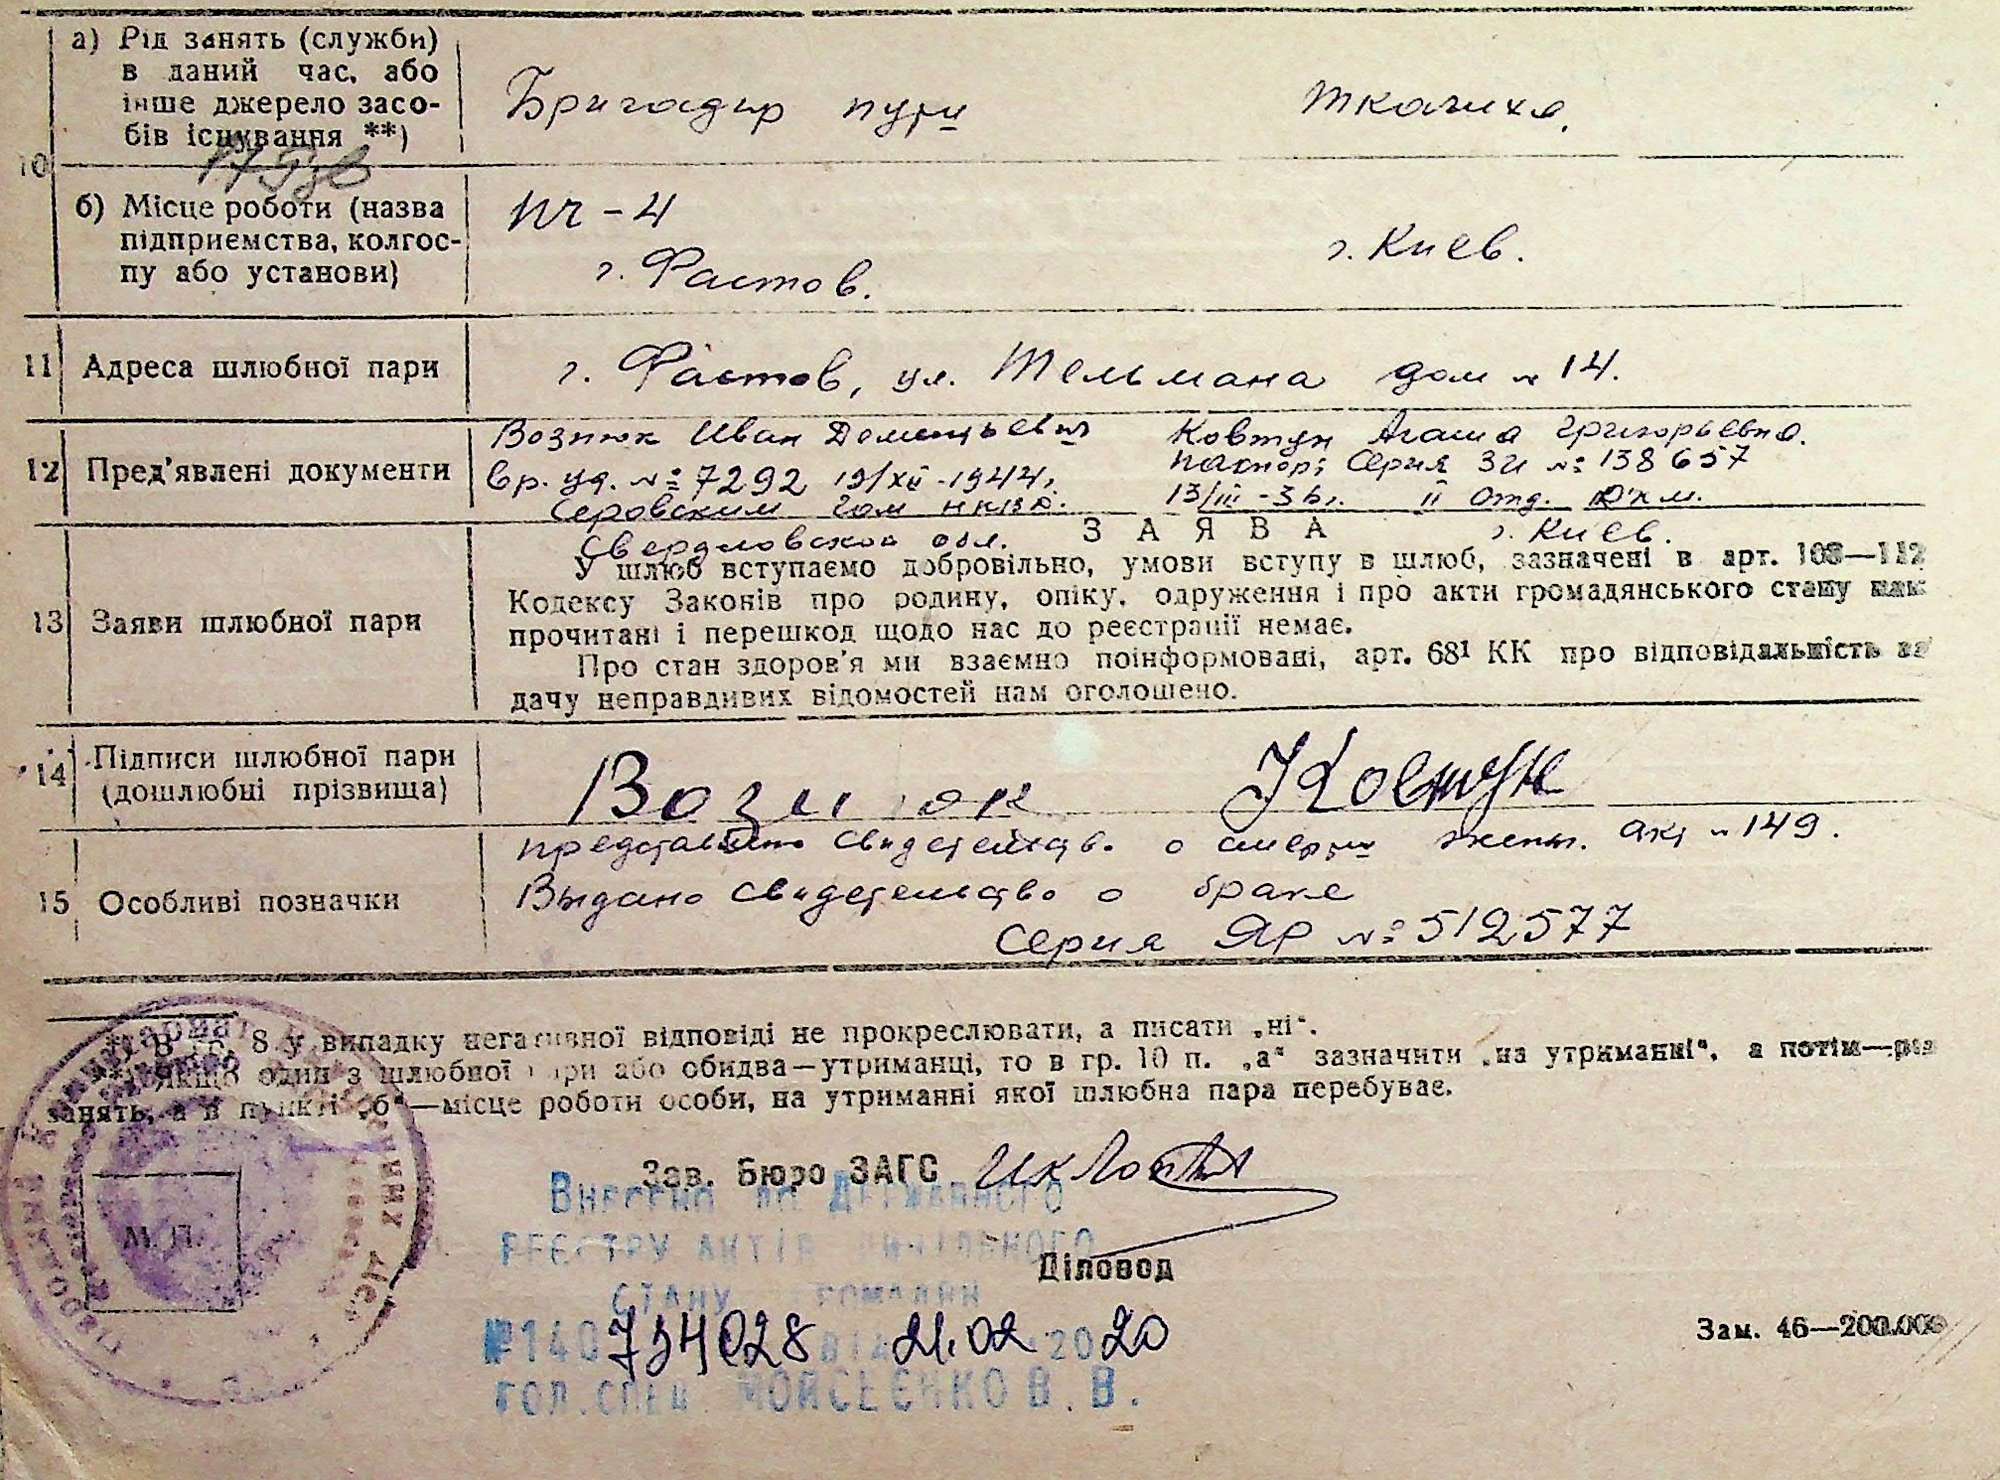 10 а) Рід занять (служби) в даний час, або інше джерело засобів існування **)
Бригадир пути
Ткачиха.
б) Місце роботи (назва підприємства, колгоспу або установи)
ПЧ-4
г. Фастов.
г. Киев.
11 Адреса шлюбної пари
г. Фастов, ул. Тельмана дом № 14.
12 Пред'явлені документи
Вознюк Иван Дементьевич
вр. уд. №: 7292 19/XII-1944г.
Серовским Гом НКВД.
Свердловской обл.
Ковтун Агаша Григорьевна.
паспорт Серия ЗИ №: 138657
13/III-36г. II Отд.
г. Киев.
13 Заяви шлюбної пари
ЗАЯВА
У шлюб вступаємо добровільно, умови вступу в шлюб, зазначені в арт. 108—112
Кодексу Законів про родину, опіку, одруження і про акти громадянського стану нам
прочитані і перешкод щодо нас до реєстрації немає.
Про стан здоров'я ми взаємно поінформовані, арт. 68¹ КК про відповідальність за
дачу неправдивих відомостей нам оголошено.
14 Підписи шлюбної пари (дошлюбні прізвища)
Вознюк
Ковтун
15 Особливі позначки
представлено свидетельств. о смерти жены. акт № 149.
Выдано свидетельство о браке
Серия ЯР №: 512577
*) В гр. 8 у випадку негативної відповіді не прокреслювати, а писати „ні“.
**) Якщо один з шлюбної пари або обидва—утриманці, то в гр. 10 п. „а“ зазначити „на утриманні“, а потім—рід
занять, а в пункті „б“—місце роботи особи, на утриманні якої шлюбна пара перебуває.
Зав. Бюро ЗАГС
Внесено до Державного
реєстру актів цивільного
Діловод
стану громадян
№140734028 від 21.02 2020
гол. спец. Мойсеєнко В. В.
М. П.
Зам. 46—200.000